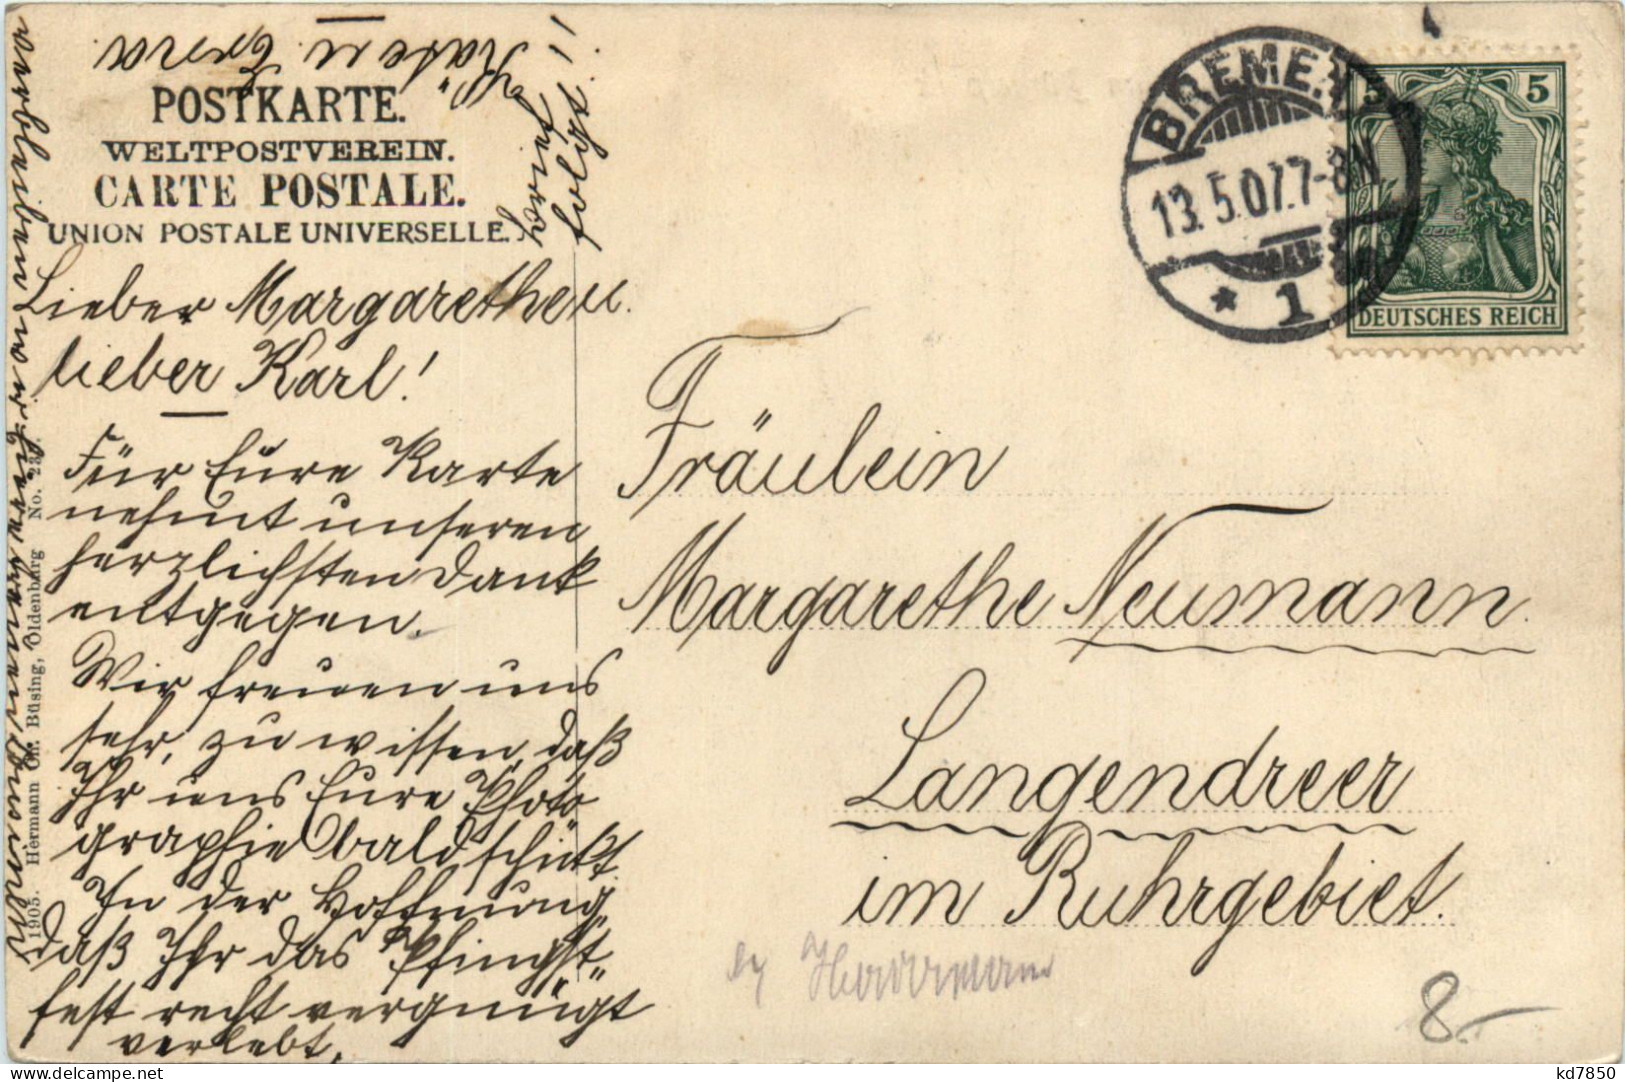 POSTKARTE.
WELTPOSTVEREIN.
CARTE POSTALE.
UNION POSTALE UNIVERSELLE.
Lieber Margarethe u.
lieber Karl!
Für Eure Karte
nehmt unseren
herzlichsten Dank
entgegen.
Wir freuen uns
sehr, zu wissen, daß
Ihr uns Eure Photo
graphie bald schickt.
In der Hoffnung,
daß Ihr das Pfingst-
fest recht vergnügt
verlebt,
verbleiben wir Eure
Käte u. Erna
folgt
1905. Hermann Ch. Büsing, Oldenburg No. 23.
BREMEN
13.5.07.7-8N
* 1
5 5
DEUTSCHES REICH
Fräulein
Margarethe Neumann.
Langendreer
im Ruhrgebiet.
8.-
kd7850